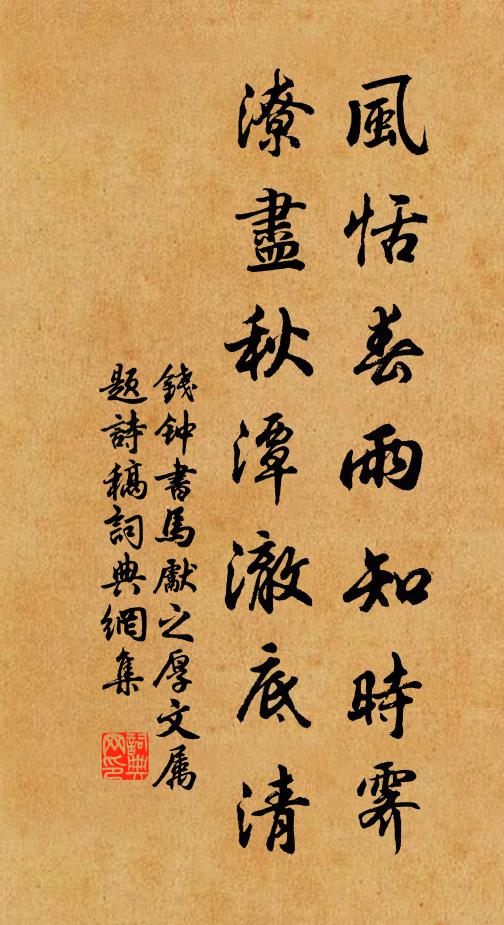 風恬春雨知時霽
潦盡秋潭澈底清
錢钟書馬獻之厚文属
题詩稿詞典網集
詞典網印